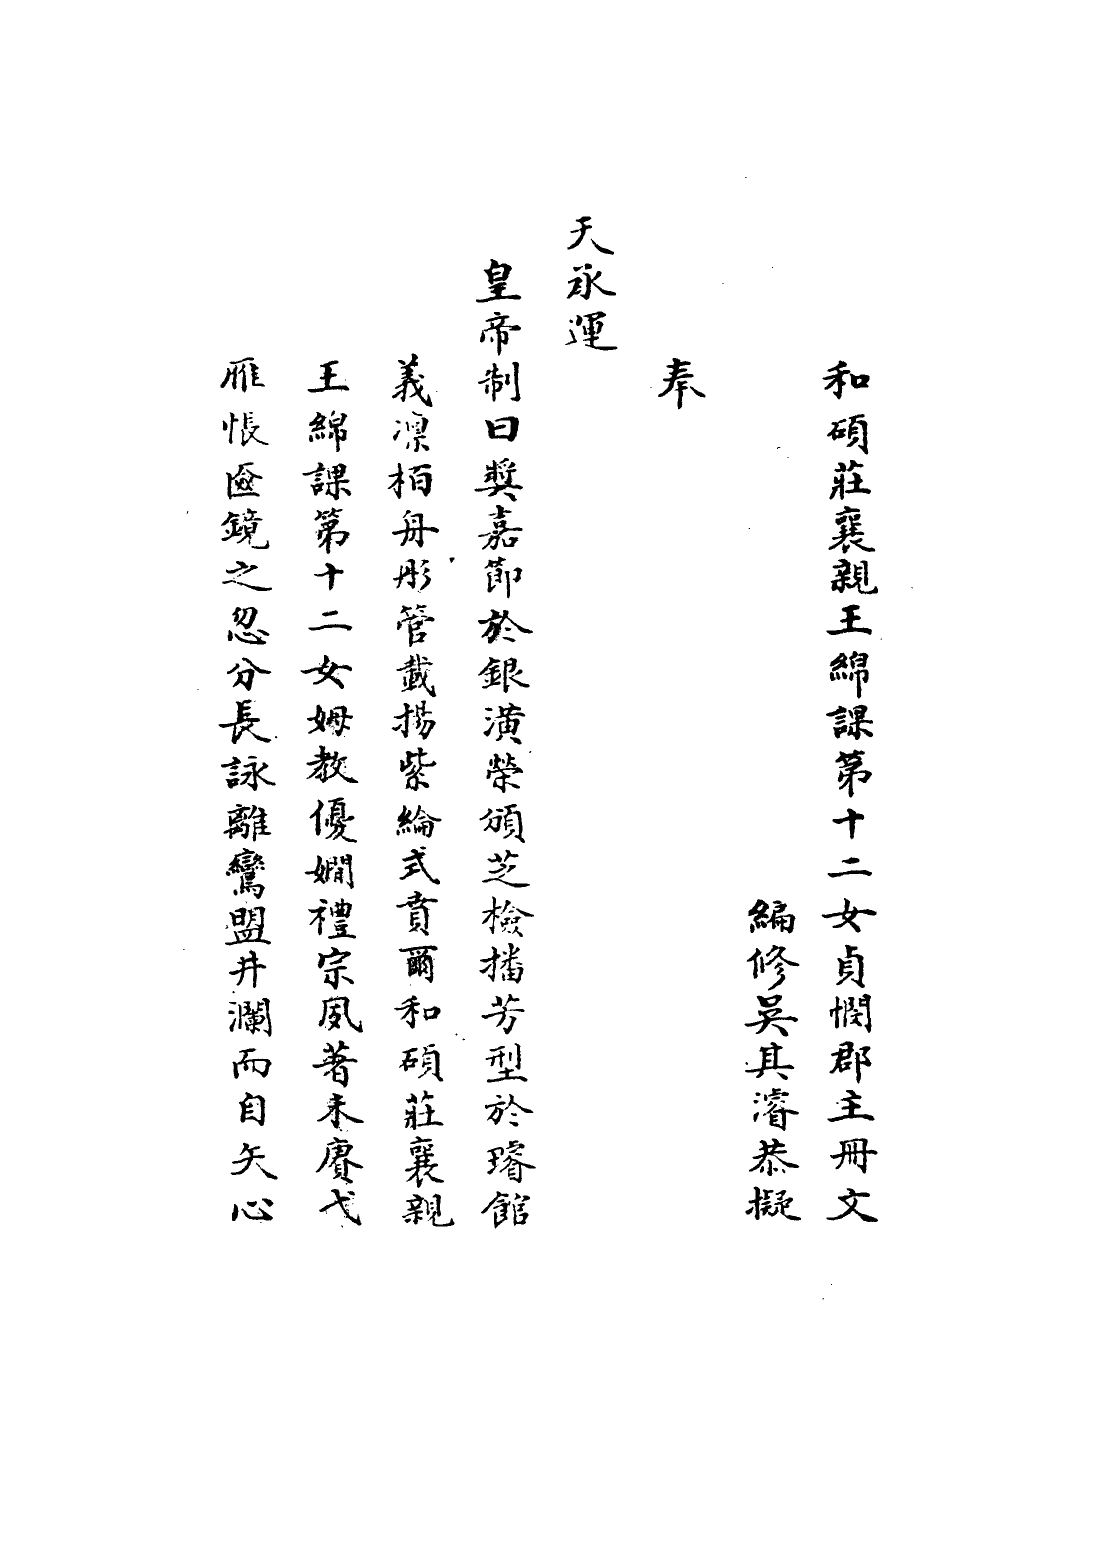 和碩莊襄親王綿課第十二女貞憫郡主冊文
編修吳其濬恭擬
奉
天承運
皇帝制曰獎嘉節於銀潢榮頒芝檢播芳型於璿館
義凜栢舟彤管載揚紫綸式賁爾和碩莊襄親
王綿課第十二女姆教優嫺禮宗夙著未賡弋
雁悵奩鏡之忽分長詠離鸞盟井瀾而自矢心